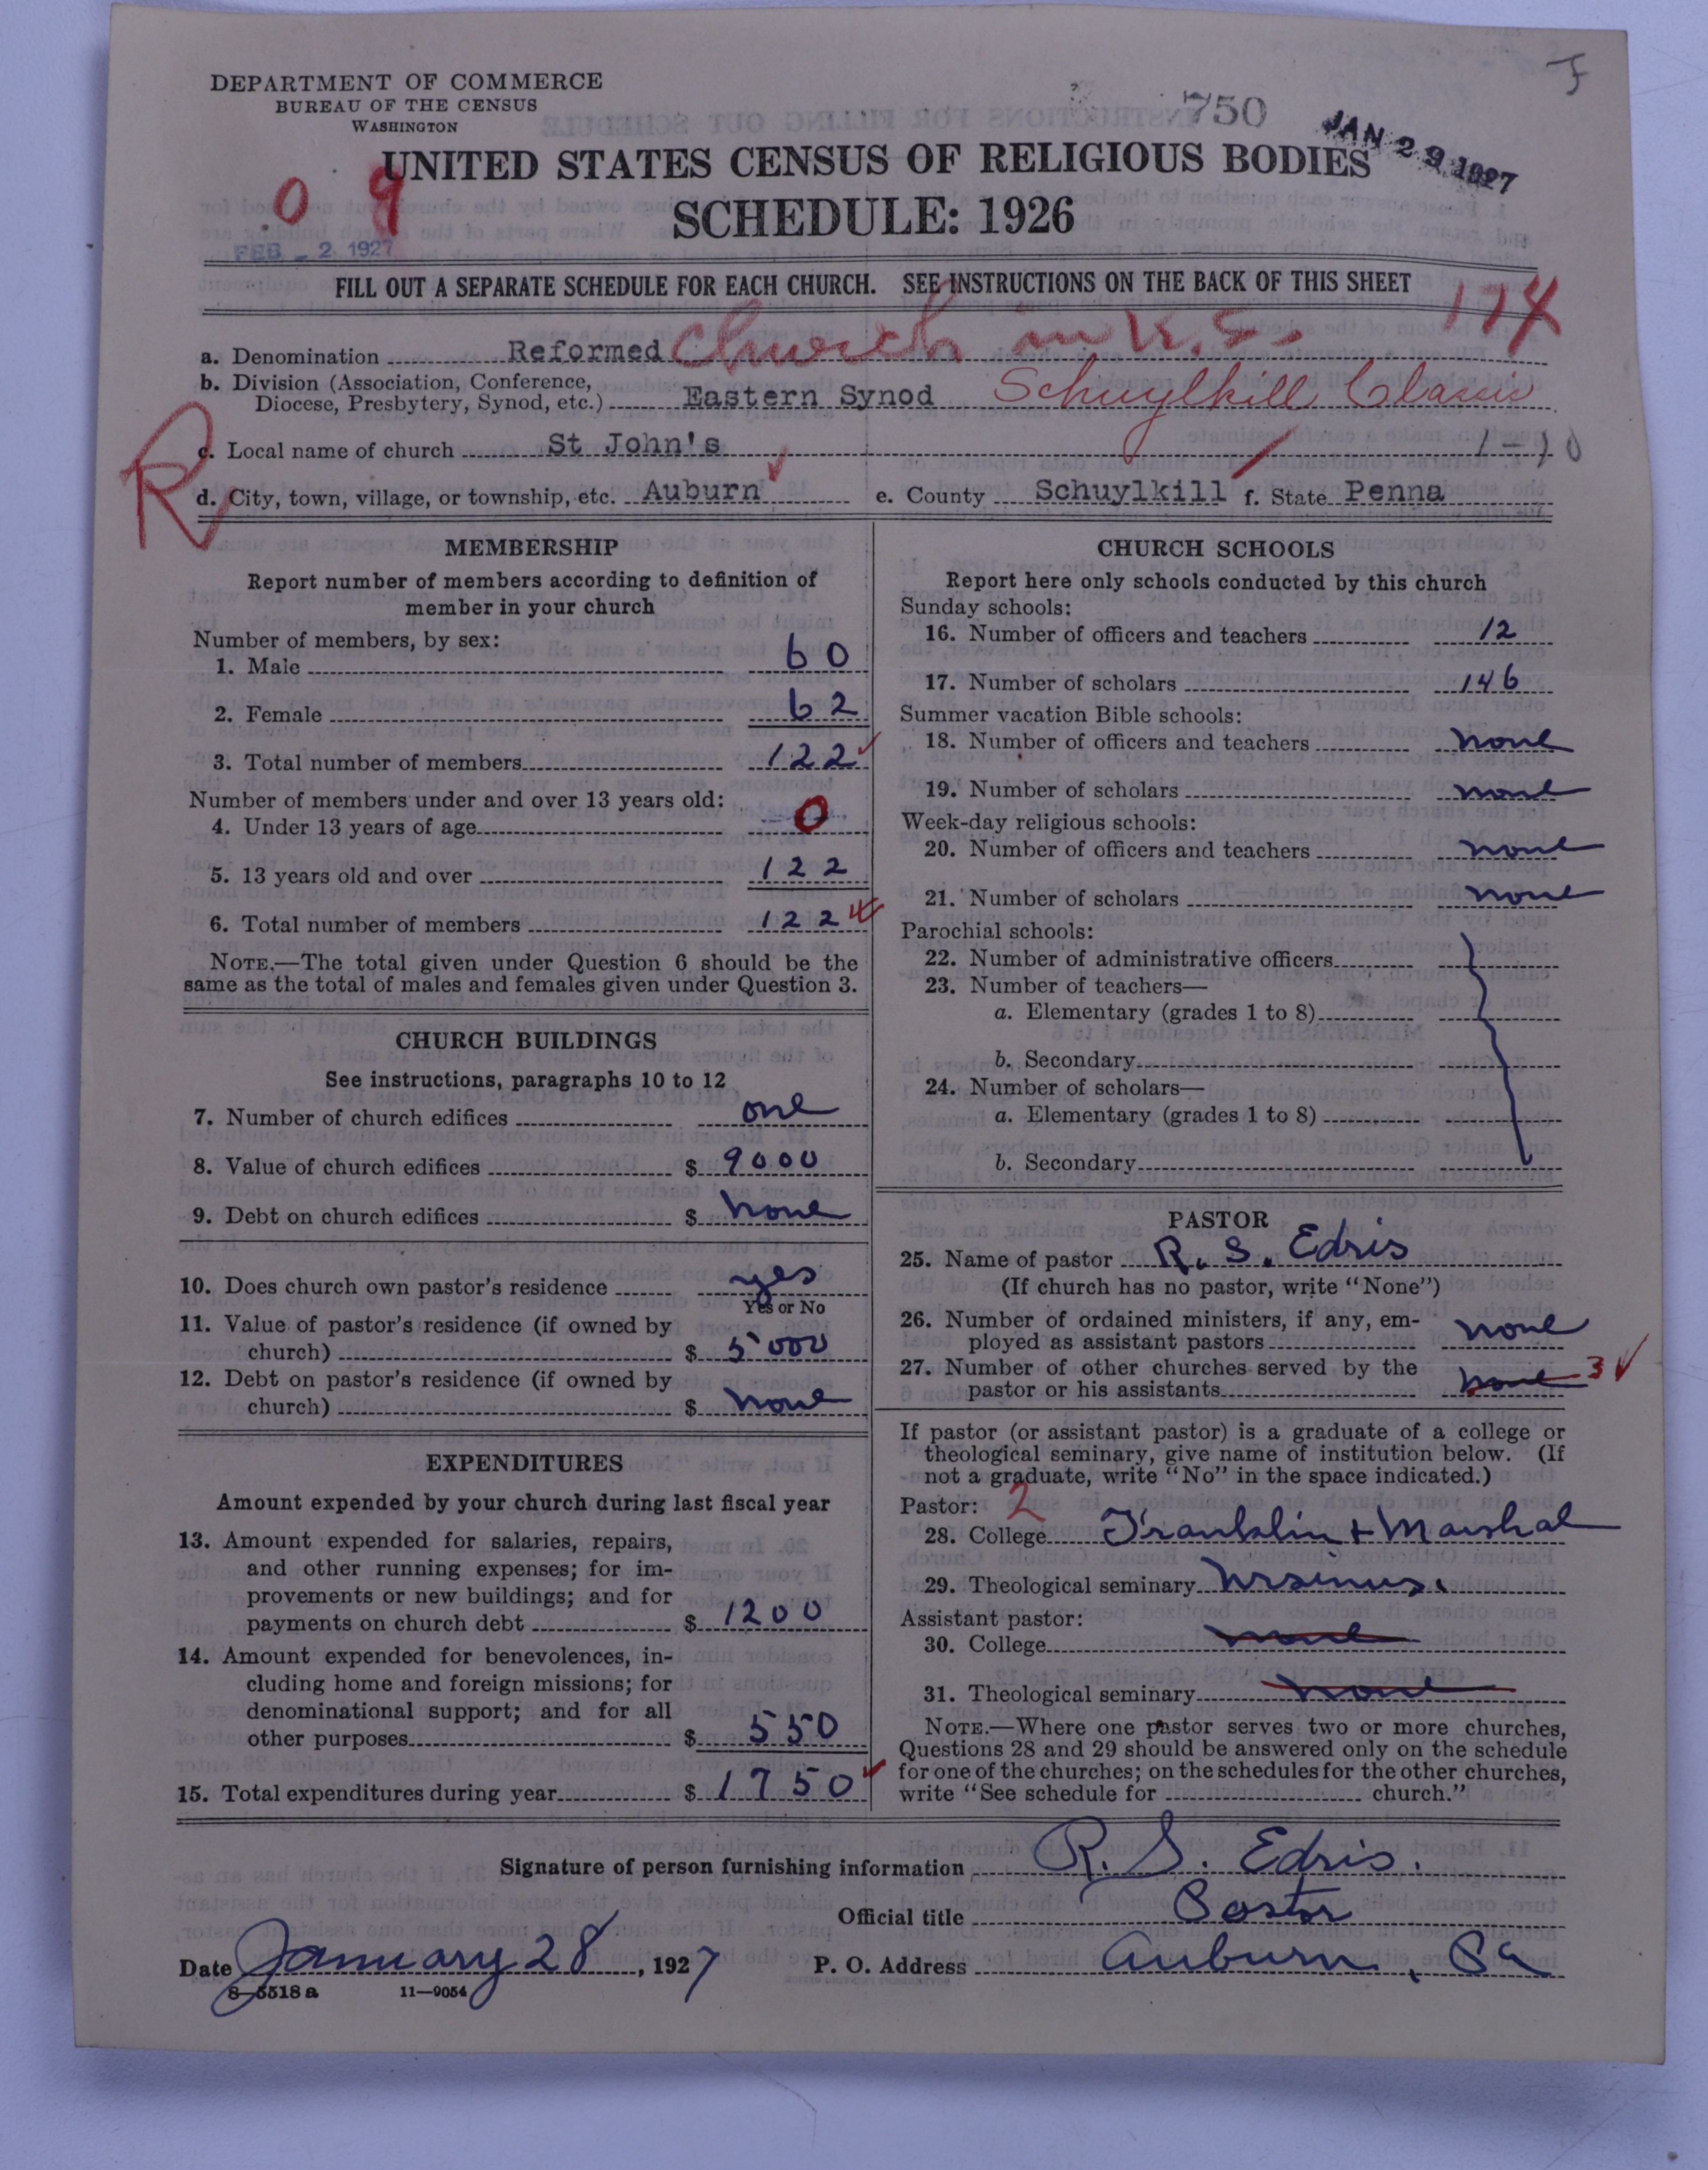 DEPARTMENT OF COMMERCE
BUREAU OF THE CENSUS
WASHINGTON
750
JAN 29 1927
F
UNITED STATES CENSUS OF RELIGIOUS BODIES
0 9
SCHEDULE: 1926
FEB - 2 1927
FILL OUT A SEPARATE SCHEDULE FOR EACH CHURCH. SEE INSTRUCTIONS ON THE BACK OF THIS SHEET
174
a. Denomination Reformed Church in U.S.
b. Division (Association, Conference,
Diocese, Presbytery, Synod, etc.) Eastern Synod Schuylkill Classis
R
c. Local name of church St John's
d. City, town, village, or township, etc. Auburn e. County Schuylkill f. State Penna
MEMBERSHIP
Report number of members according to definition of
member in your church
Number of members, by sex:
1. Male 60
2. Female 62
3. Total number of members 122
Number of members under and over 13 years old:
4. Under 13 years of age 0
5. 13 years old and over 122
6. Total number of members 122
NOTE.—The total given under Question 6 should be the
same as the total of males and females given under Question 3.
CHURCH BUILDINGS
See instructions, paragraphs 10 to 12
7. Number of church edifices one
8. Value of church edifices $ 9000
9. Debt on church edifices $ None
10. Does church own pastor's residence yes
Yes or No
11. Value of pastor's residence (if owned by
church) $ 5000
12. Debt on pastor's residence (if owned by
church) $ None
EXPENDITURES
Amount expended by your church during last fiscal year
13. Amount expended for salaries, repairs,
and other running expenses; for im-
provements or new buildings; and for
payments on church debt $ 1200
14. Amount expended for benevolences, in-
cluding home and foreign missions; for
denominational support; and for all
other purposes $ 550
15. Total expenditures during year $ 1750
CHURCH SCHOOLS
Report here only schools conducted by this church
Sunday schools:
16. Number of officers and teachers 12
17. Number of scholars 146
Summer vacation Bible schools:
18. Number of officers and teachers none
19. Number of scholars none
Week-day religious schools:
20. Number of officers and teachers none
21. Number of scholars none
Parochial schools:
22. Number of administrative officers
23. Number of teachers—
a. Elementary (grades 1 to 8)
b. Secondary
24. Number of scholars—
a. Elementary (grades 1 to 8)
b. Secondary
PASTOR
25. Name of pastor R. S. Edris
(If church has no pastor, write "None")
26. Number of ordained ministers, if any, em-
ployed as assistant pastors none
27. Number of other churches served by the
pastor or his assistants none 3
If pastor (or assistant pastor) is a graduate of a college or
theological seminary, give name of institution below. (If
not a graduate, write "No" in the space indicated.)
Pastor: 2
28. College Franklin + Marshal
29. Theological seminary Ursinus.
Assistant pastor:
30. College none
31. Theological seminary none
NOTE.—Where one pastor serves two or more churches,
Questions 28 and 29 should be answered only on the schedule
for one of the churches; on the schedules for the other churches,
write "See schedule for church."
Signature of person furnishing information R. S. Edris.
Official title Pastor
Date January 28, 1927 P. O. Address Auburn, Pa
8-5518a 11-9054